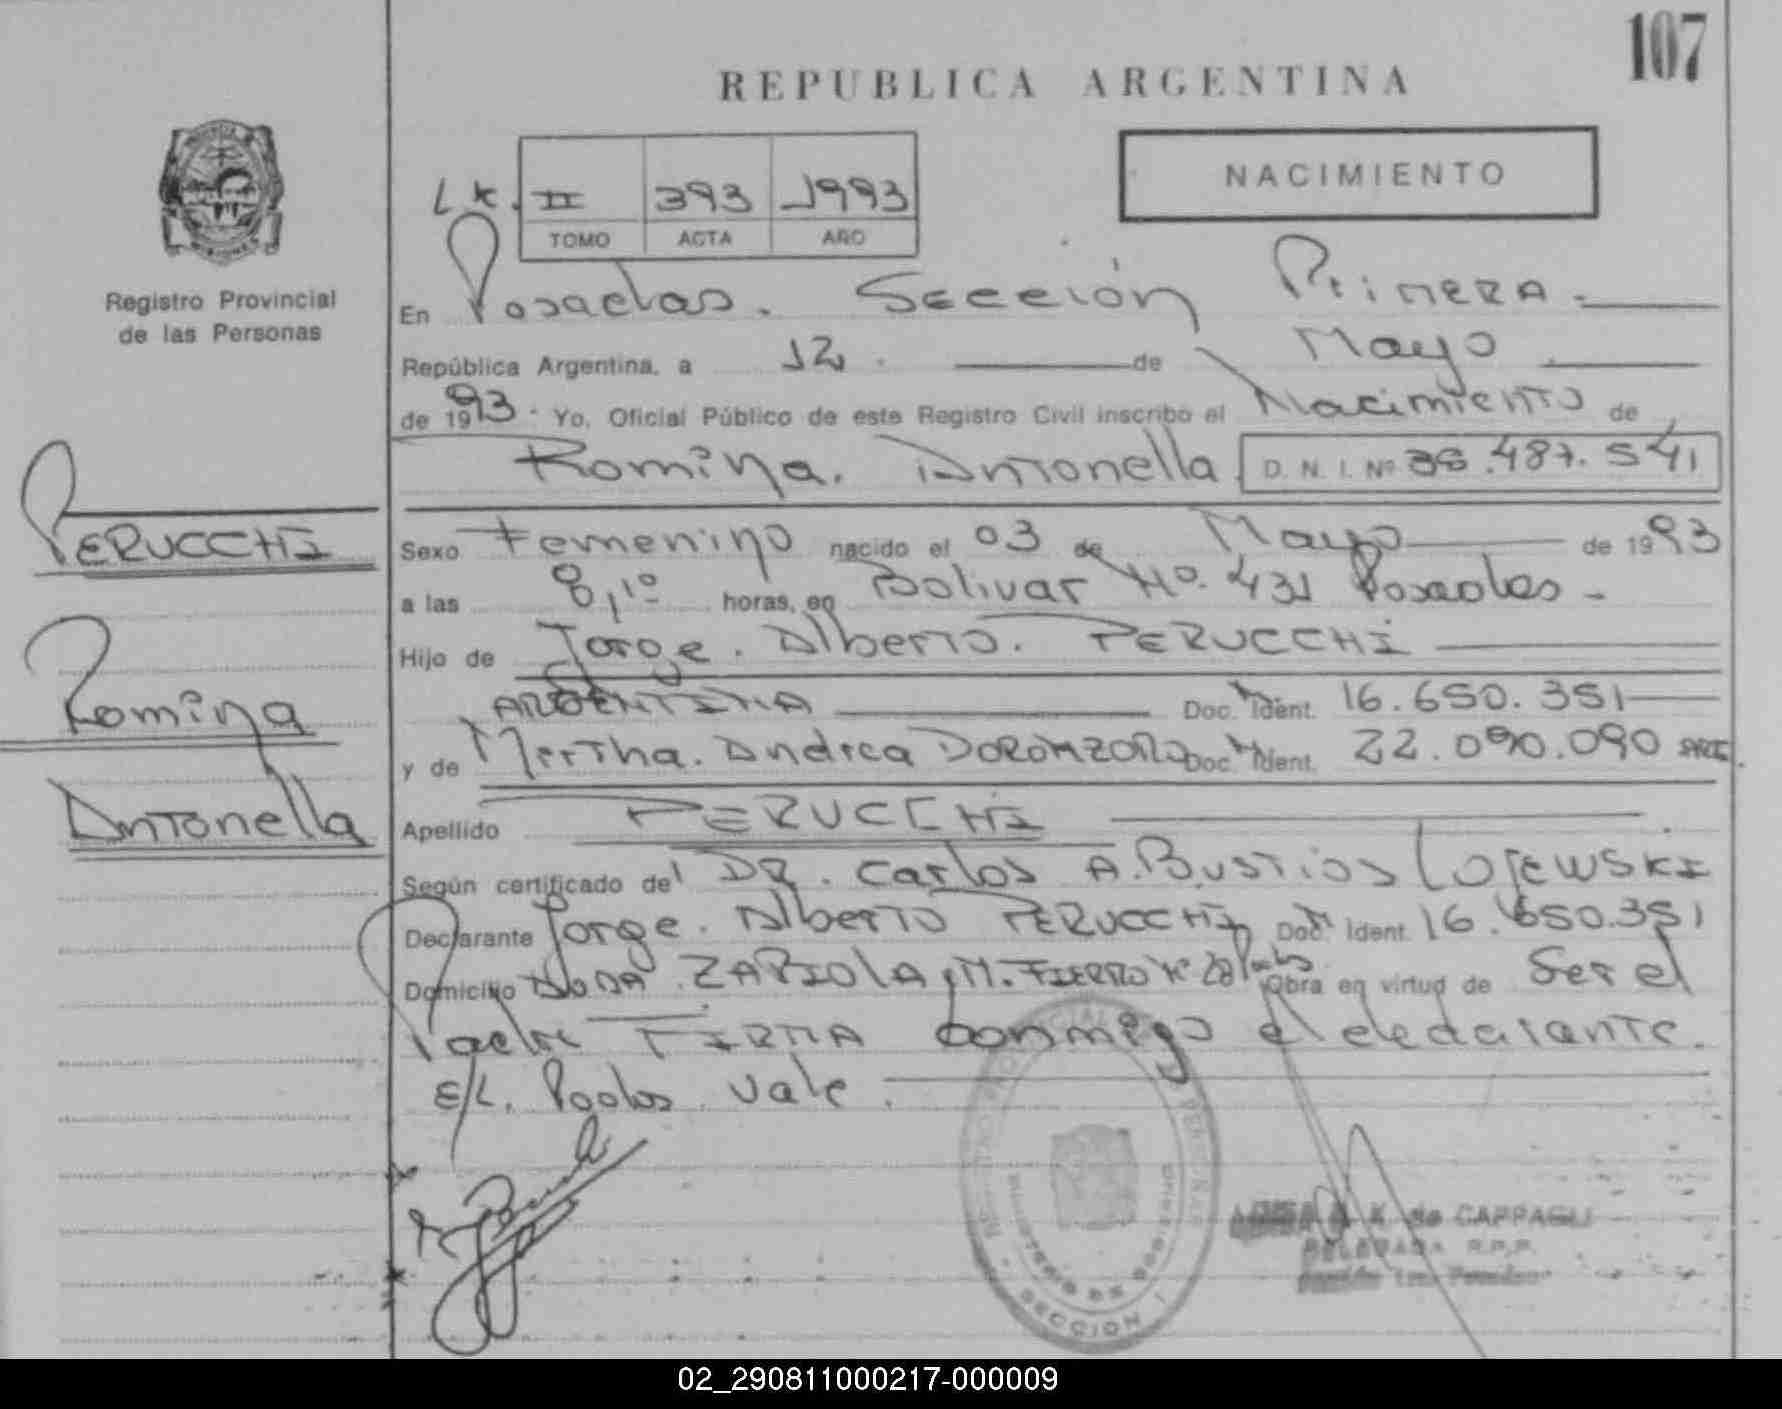 107
REPUBLICA ARGENTINA
NACIMIENTO
II 393 1993
TOMO ACTA AÑO
Registro Provincial
de las Personas
En Posadas. Sección Primera
República Argentina, a 12 de Mayo
de 1993. Yo, Oficial Público de este Registro Civil inscribo el Nacimiento de
Romina. Antonella D. N. I. Nº 487.541
PERUCCHI
Romina
Antonella
Sexo Femenino nacido el 03 de Mayo de 1993
a las 8,10 horas, en Bolivar Nº. 431 Posadas -
Hijo de Jorge. Alberto. PERUCCHI
ARGENTINA Doc. Ident. 16.650.351
y de Mertha. Andrea Doc. Ident. 22.090.090 ARG.
Apellido PERUCCHI
Según certificado del DR. Carlos A. Bustios LOJEWSKI
Declarante Jorge. Alberto PERUCCHI Doc. Ident. 16.650.351
Domicilio AVDA. ZAPIOLA y M. FIERRO Obra en virtud de Ser el
Padre FIRMA conmigo el declarante.
E/L. Pdas. Vale.
MINISTERIO DE GOBIERNO
SECCION 1
de CAPPAGLI
DELEGADA R.P.P.
02_290811000217-000009